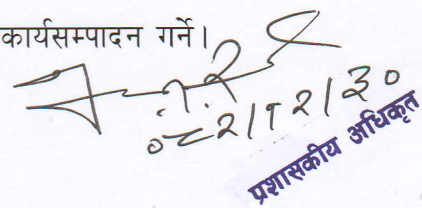 कार्यसम्पादन गर्ने।
०८२।१२।३०
प्रशासकीय अधिकृत